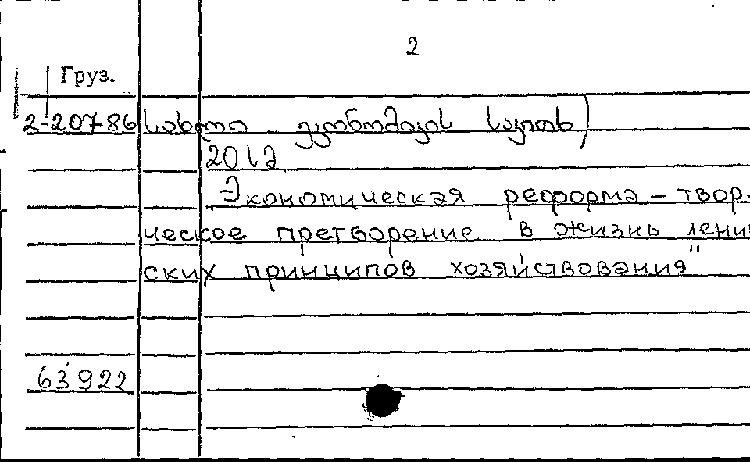 2
Груз.
2-20786 სახელო ეკონომიკის საკითხ)
20 სმ
Экономическая реформа – твор-
ческое претворение в жизнь ленин
ских принципов хозяйствования"
63922